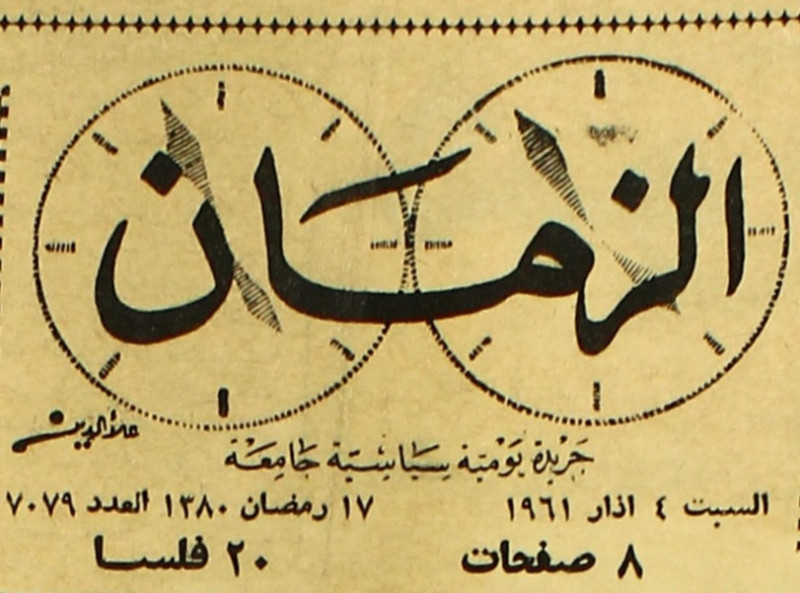 الزمان
علاء الدين
جَرِيدَة يَوْمِيَّة سِيَاسِيَّة جَامِعَة
السبت ٤ اذار ١٩٦١ ١٧ رمضان ١٣٨٠ العدد ٧٠٧٩
٨ صفحات ٢٠ فلسا